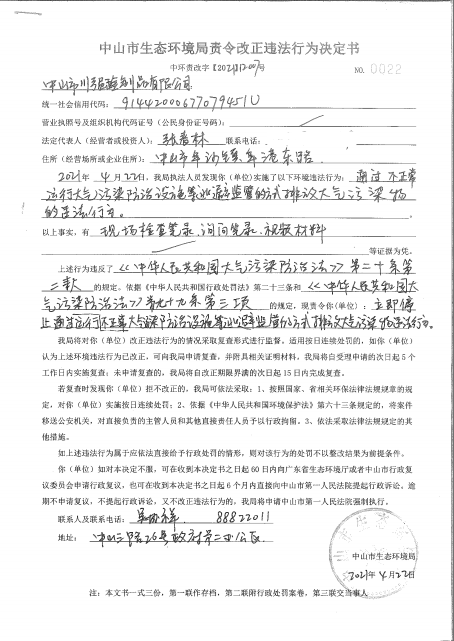 中山市生态环境局责令改正违法行为决定书
中环责改字【2021】1207号
NO. 0022
中山市川强磁制品有限公司：
统一社会信用代码： 91442000677079451U
营业执照号及组织机构代码证号（公民身份证号码）：
法定代表人（经营者或投资人）： 联系电话：
住所（经营场所或企业住所）：
2021年 4月22日，我局执法人员发现你（单位）实施了以下环境违法行为： 通过不正常
运行大气污染防治设施等逃避监管的方式排放大气污染物
的违法行为。
以上事实，有 现场检查笔录、询问笔录、视频材料
等证据为凭。
上述行为违反了 《中华人民共和国大气污染防治法》第二十条第
二款 的规定。依据《中华人民共和国行政处罚法》第二十三条和 《中华人民共和国大
气污染防治法》第九十九条第三项 的规定，现责令你（单位）： 立即停
止通过不正常运行大气污染防治设施等逃避监管的方式排放大气污染物的违法行为。
我局将对你（单位）改正违法行为的情况采取复查形式进行监督。适用按日连续处罚的，如你（单位）
认为上述环境违法行为已改正，可向我局申请复查，并附具相关证明材料，我局将自受理申请的次日起5个
工作日内实施复查；未申请复查的，我局将自改正期限界满的次日起15日内完成复查。
若复查时发现你（单位）拒不改正的，我局可依法采取：1、按照国家、省相关环保法律法规规章的规
定，对你（单位）实施按日连续处罚；2、依据《中华人民共和国环境保护法》第六十三条规定的，将案件
移送公安机关，对直接负责的主管人员和其他直接责任人员予以行政拘留。3、依法采取法律法规规定的其
他措施。
如上述违法行为属于应依法直接给予行政处罚的情形，则对该行为的处罚不以整改结果为前提条件。
你（单位）如对本决定不服，可在收到本决定书之日起60日内向广东省生态环境厅或者中山市行政复
议委员会申请行政复议，也可在收到本决定书之日起6个月内直接向中山市第一人民法院提起行政诉讼。逾
期不申请复议，不提起行政诉讼，又不改正违法行为的，我局将申请中山市第一人民法院强制执行。
联系人及联系电话： 88822011
地址： 中山三路26号政府第二办公区
中山市生态环境局
2021年4月22日
注：本文书一式三份，第一联作存档，第二联附行政处罚案卷，第三联交当事人